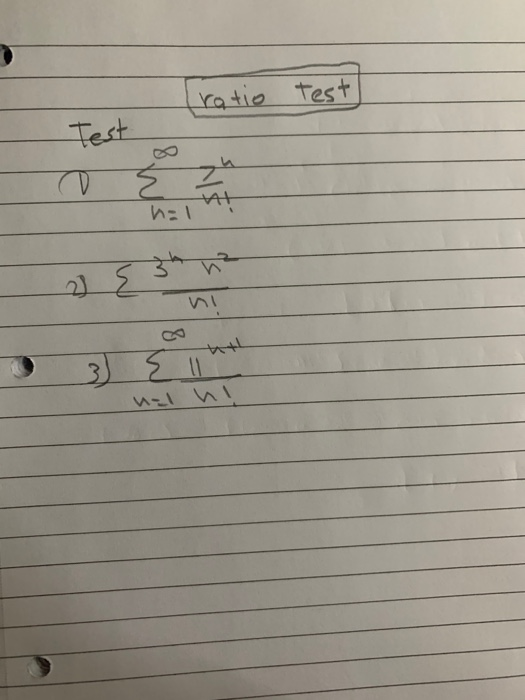 ratio Test
Test
1) ∞ Σ n=1 2ⁿ/n!
2) Σ 3ⁿ n²/n!
3) ∞ Σ n=1 11ⁿ⁺¹/n!